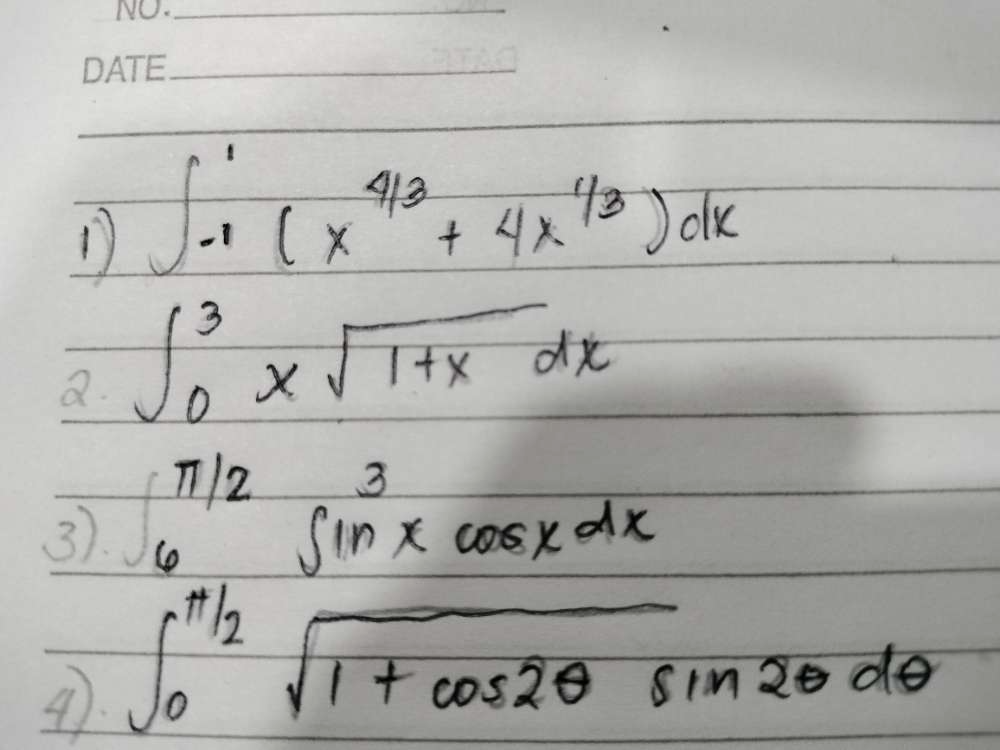 NO.
DATE
1) ∫_{-1}^{1} ( x^{4/3} + 4x^{1/3} ) dx
2. ∫_{0}^{3} x √(1+x) dx
3). ∫_{0}^{π/2} sin^{3} x cos x dx
4). ∫_{0}^{π/2} √(1 + cos2θ) sin 2θ dθ